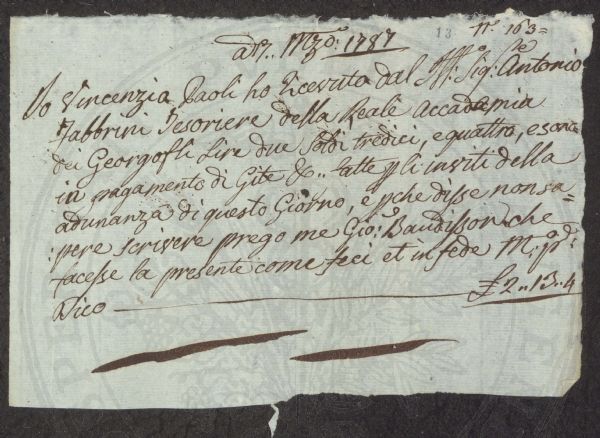 13 N.° 163=
adì 7.. Mzo: 1787
Io Vincenzia Paoli ho ricevuto dal Sig.e Antonio
Fabbrini Tesoriere della Reale Accademia
dei Georgofli Lire due Soldi tredici, e quattro, e sono
in pagamento di Gite &c.. fatte p gli inviti della
adunanza di questo Giorno, e pche disse non sa=
:pere scrivere prego me Gio: Baudisson che
facesse la presente come feci et in fede M: p:
Dico £ 2.. 13.. 4